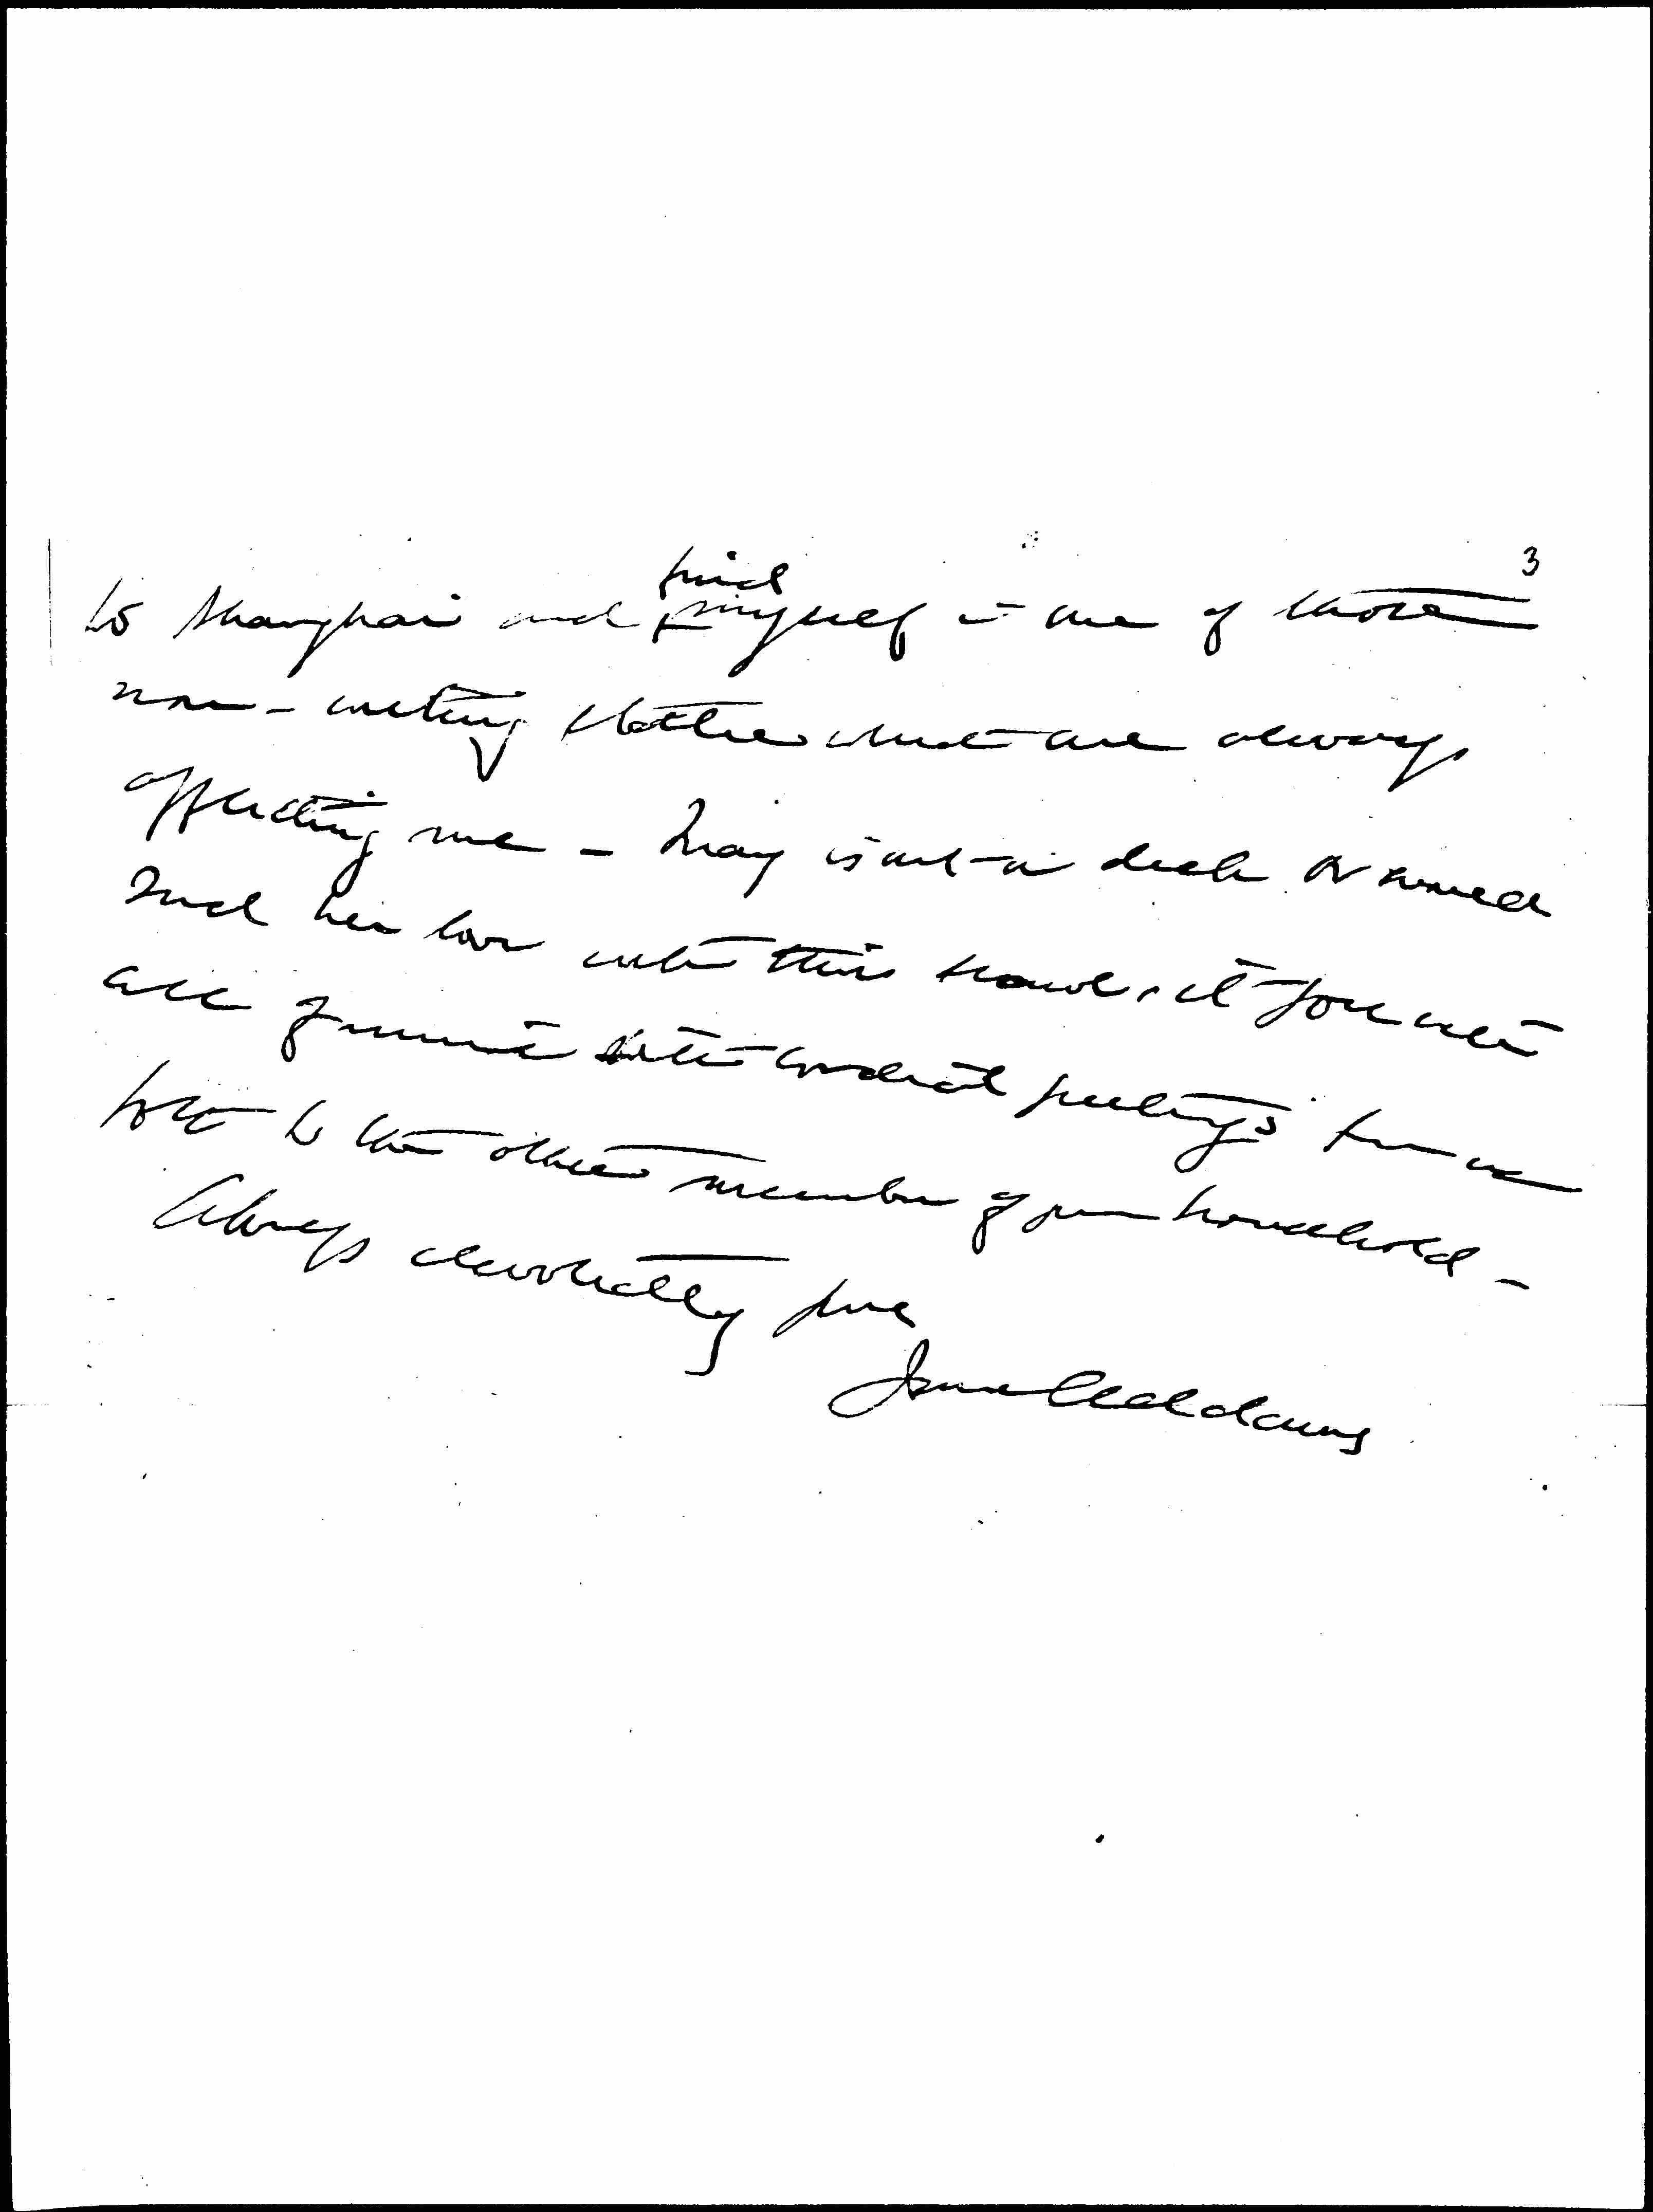 3
to Shanghai and find myself in one of those
non-writing states which are always
afflicting me - Mary is out on deck or would
send her love with this house, it goes with
all of mine with cordial greetings from us
both to the other members of your household -
Always devotedly yours
Jane Addams